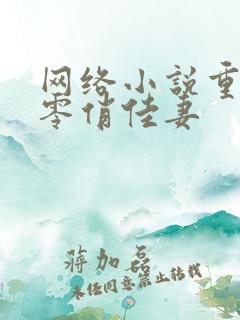 网络小说重
零俏佳妻
蒋加磊
未经同意禁止转载